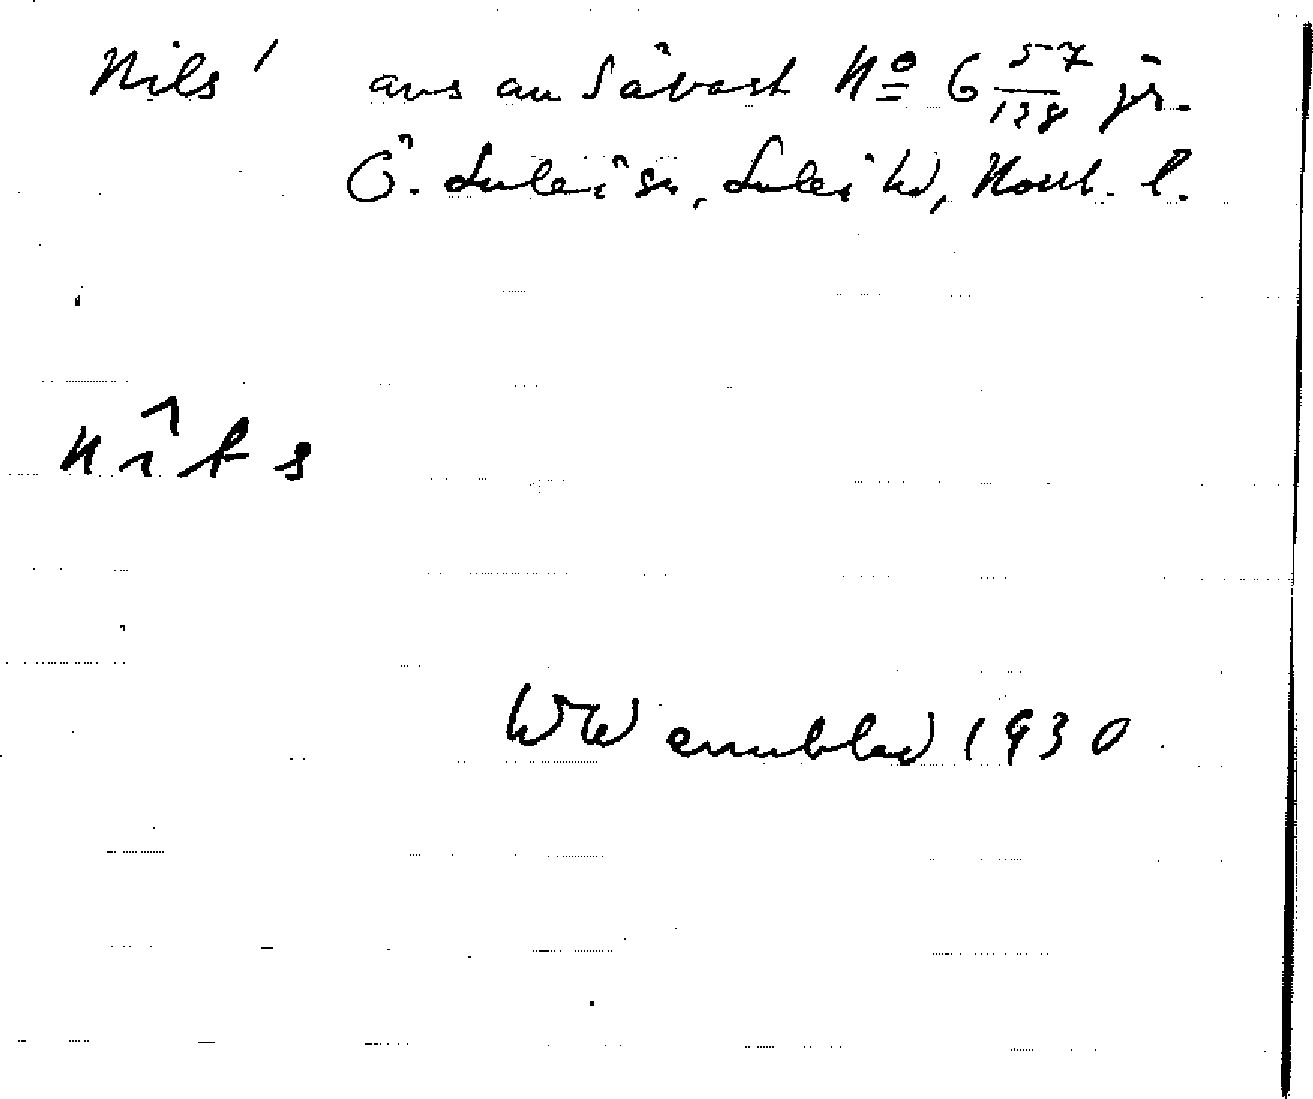 Nils' avs av Sävast Nº 6 57/128 jr.
Ö. Luleå sn, Luleå td, Norrb. l.
W Wennblad 1930